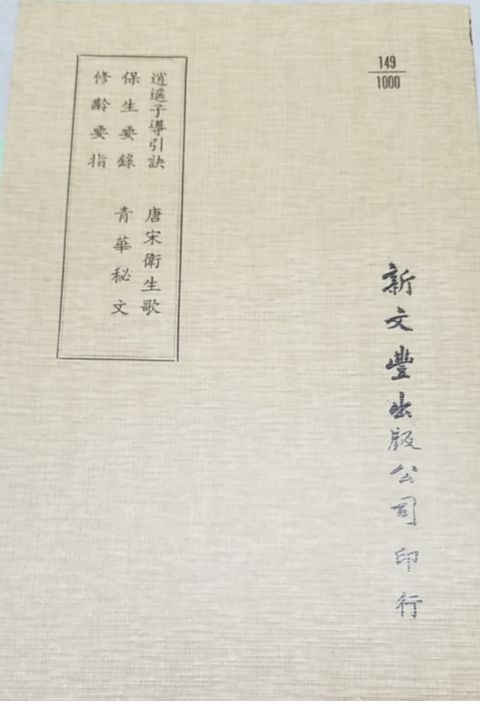 149
1000
逍遙子導引訣 唐宋衛生歌
保生要錄 青華秘文
修齡要指
新文豐出版公司印行